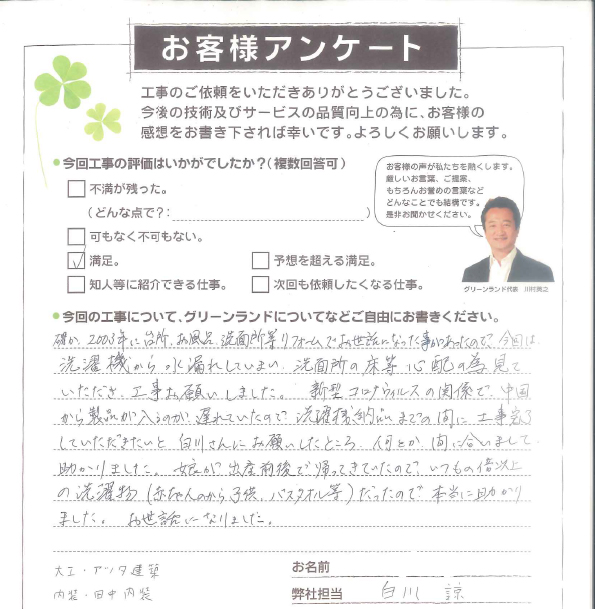 お客様アンケート
工事のご依頼をいただきありがとうございました。
今後の技術及びサービスの品質向上の為に、お客様の
感想をお書き下されば幸いです。よろしくお願いします。
今回工事の評価はいかがでしたか？（複数回答可）
不満が残った。
（どんな点で？：　）
可もなく不可もない。
満足。
予想を超える満足。
知人等に紹介できる仕事。
次回も依頼したくなる仕事。
お客様の声が私たちを熱くします。
厳しいお言葉、ご提案、
もちろんお誉めの言葉など
どんなことでも結構です。
是非お聞かせください。
グリーンランド代表　川村寛之
今回の工事について、グリーンランドについてなどご自由にお書きください。
確か、2003年に台所、お風呂、洗面所等リフォームでお世話になった事があったので、今回は
洗濯機から水漏れしてしまい、洗面所の床等、心配の為見て
いただき、工事お願いしました。　新型コロナウィルスの関係で、中国
から製品が入るのが、遅れていたので、洗濯機納品までの間に工事完了
していただきたいと白川さんにお願いしたところ、何とか間に合いまして
助かりました。娘が出産前後で帰ってきていたので、いつもの倍以上
の洗濯物（赤ちゃんのから子供、バスタオル等）だったので、本当に助かり
ました。　お世話になりました。
お名前
弊社担当　白川　諒
大工・アンタ建築
内装・田中内装